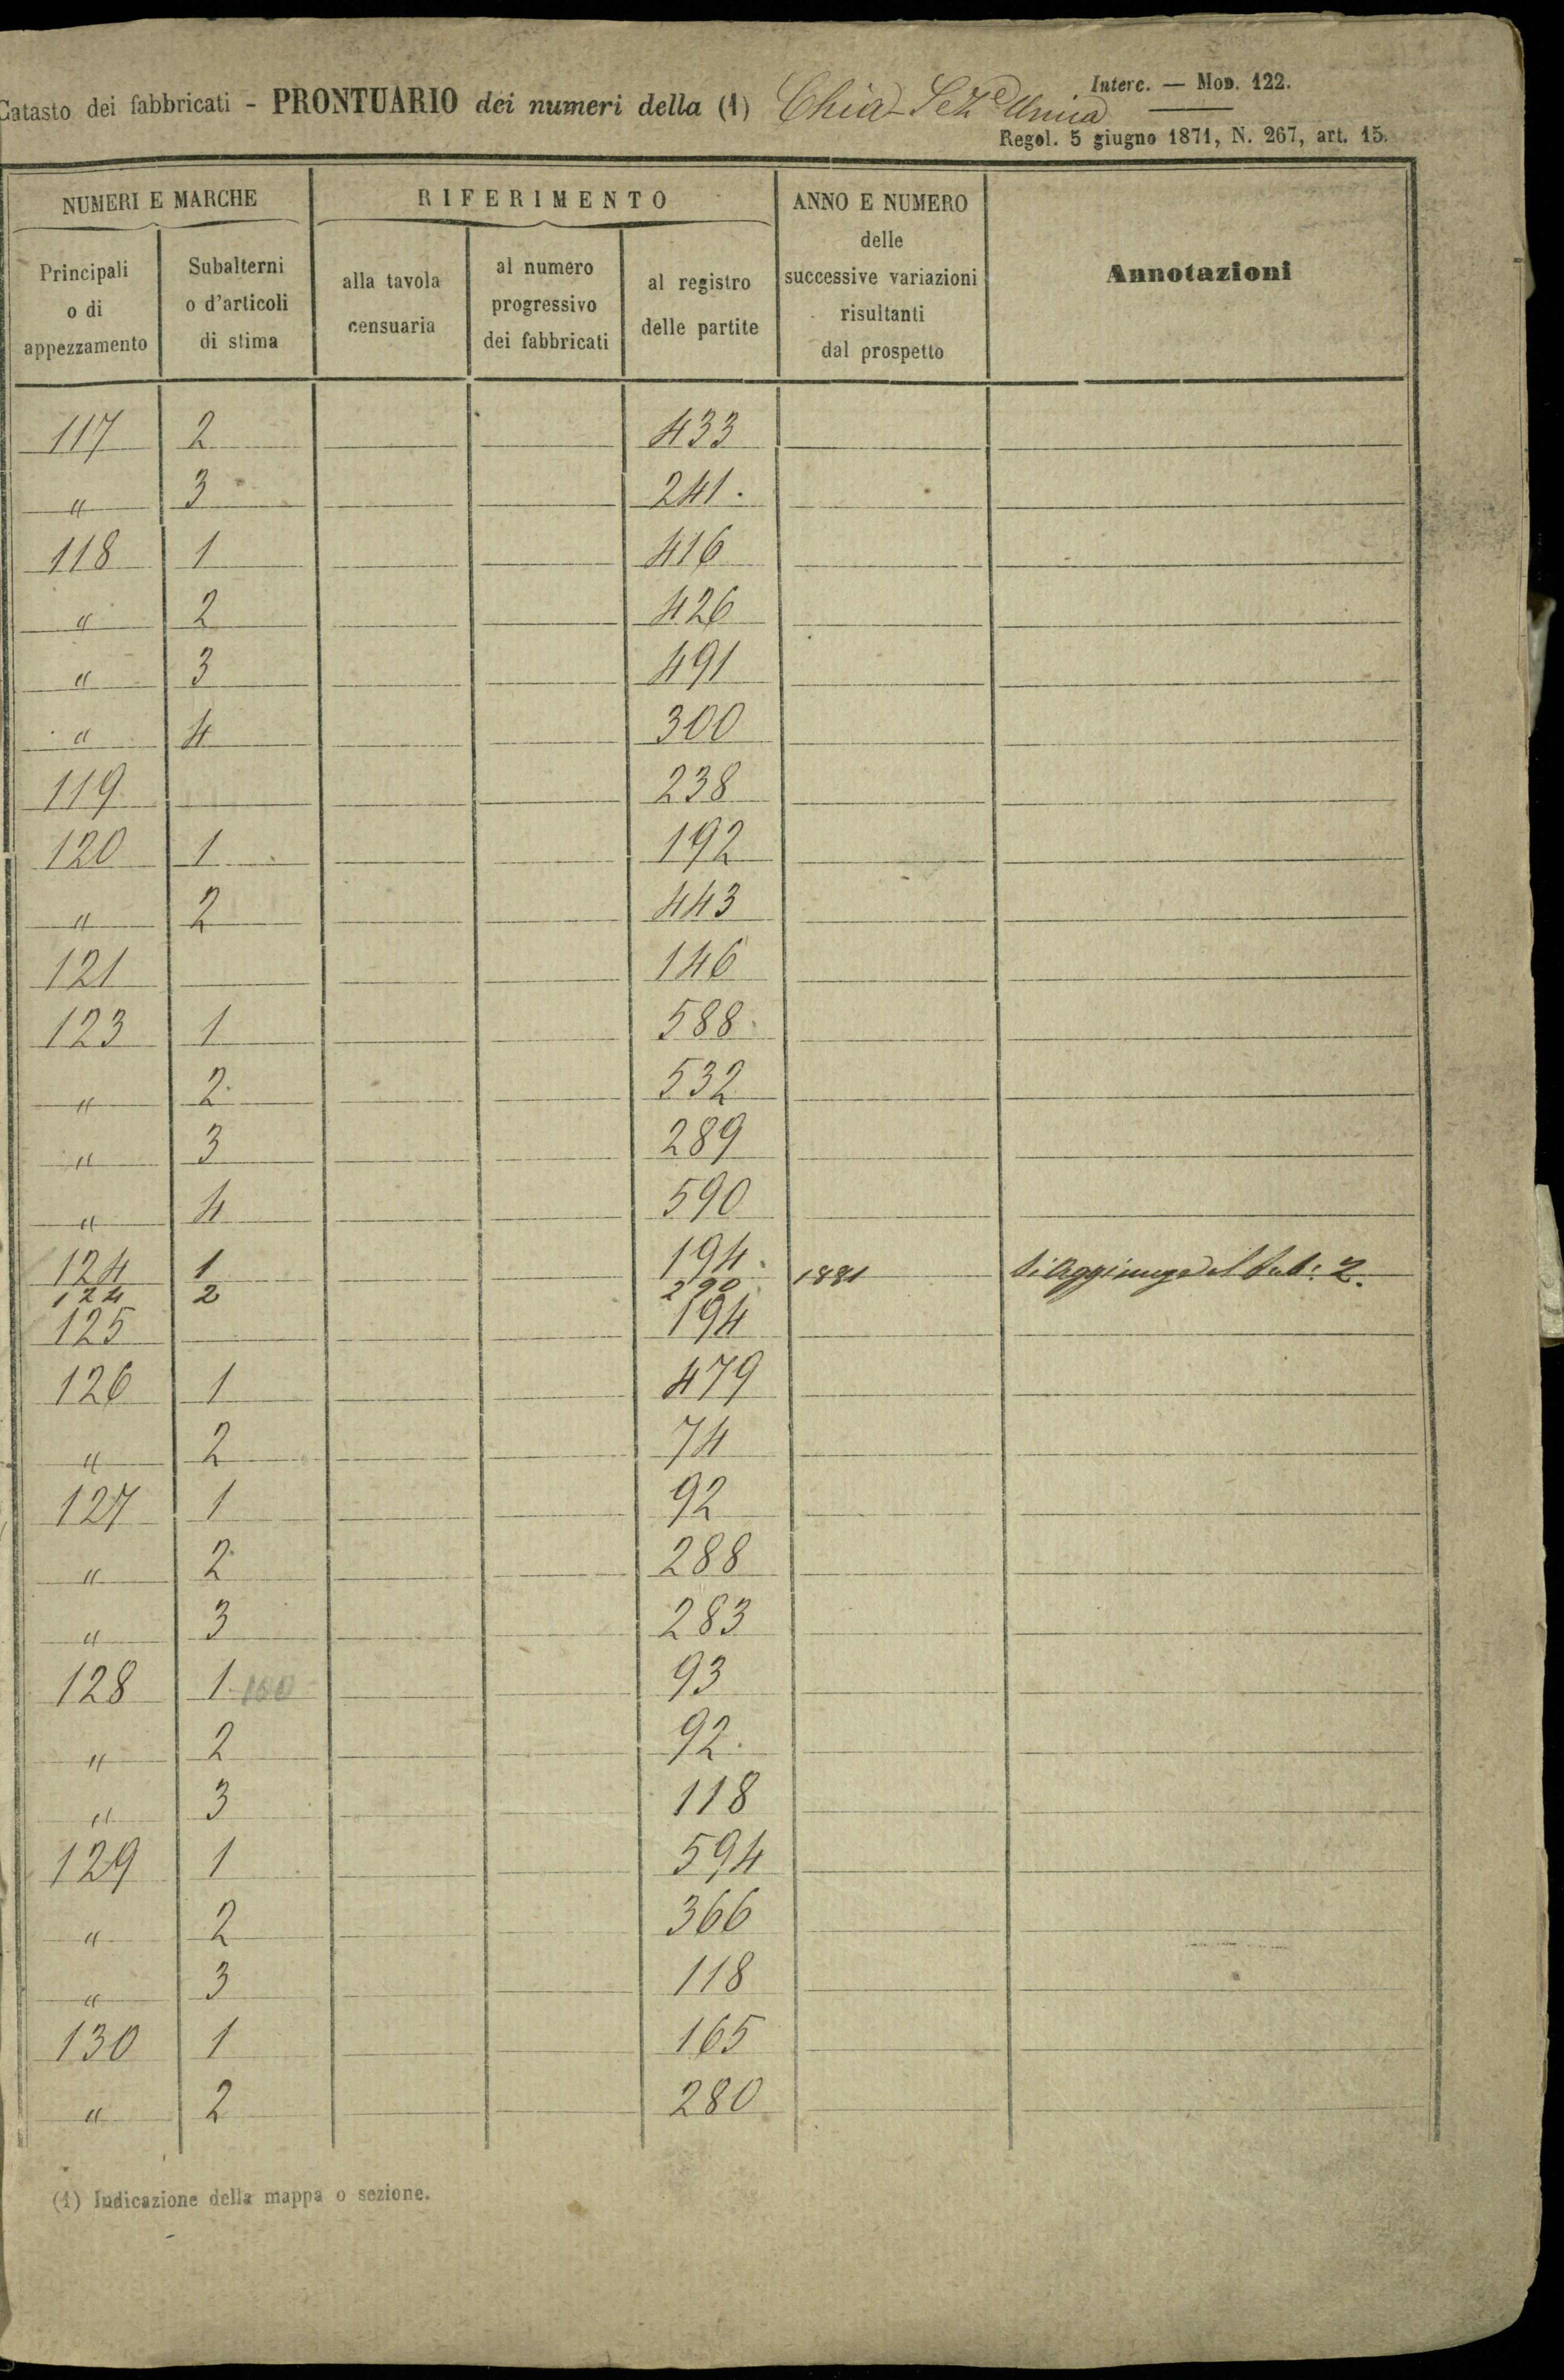 Catasto dei fabbricati - PRONTUARIO dei numeri della (1) Chia Sez.e Unica
Interc. — Mod. 122.
Regol. 5 giugno 1871, N. 267, art. 15.
NUMERI E MARCHE RIFERIMENTO ANNO E NUMERO delle successive variazioni risultanti dal prospetto Annotazioni
Principali o di appezzamento Subalterni o d'articoli di stima alla tavola censuaria al numero progressivo dei fabbricati al registro delle partite
117 2 433
" 3 241.
118 1 416
" 2 426
" 3 491
" 4 300
119 238
120 1 192
" 2 443
121 146
123 1 588
" 2 532
" 3 289
" 4 590
124 1 194. 1881 Si Aggiunge il Sub: 2.
124 2 290
125 194
126 1 479
" 2 74
127 1 92
" 2 288
" 3 283
128 1 93
" 2 92.
" 3 118
129 1 594
" 2 366
" 3 118
130 1 165
" 2 280
(1) Indicazione della mappa o sezione.